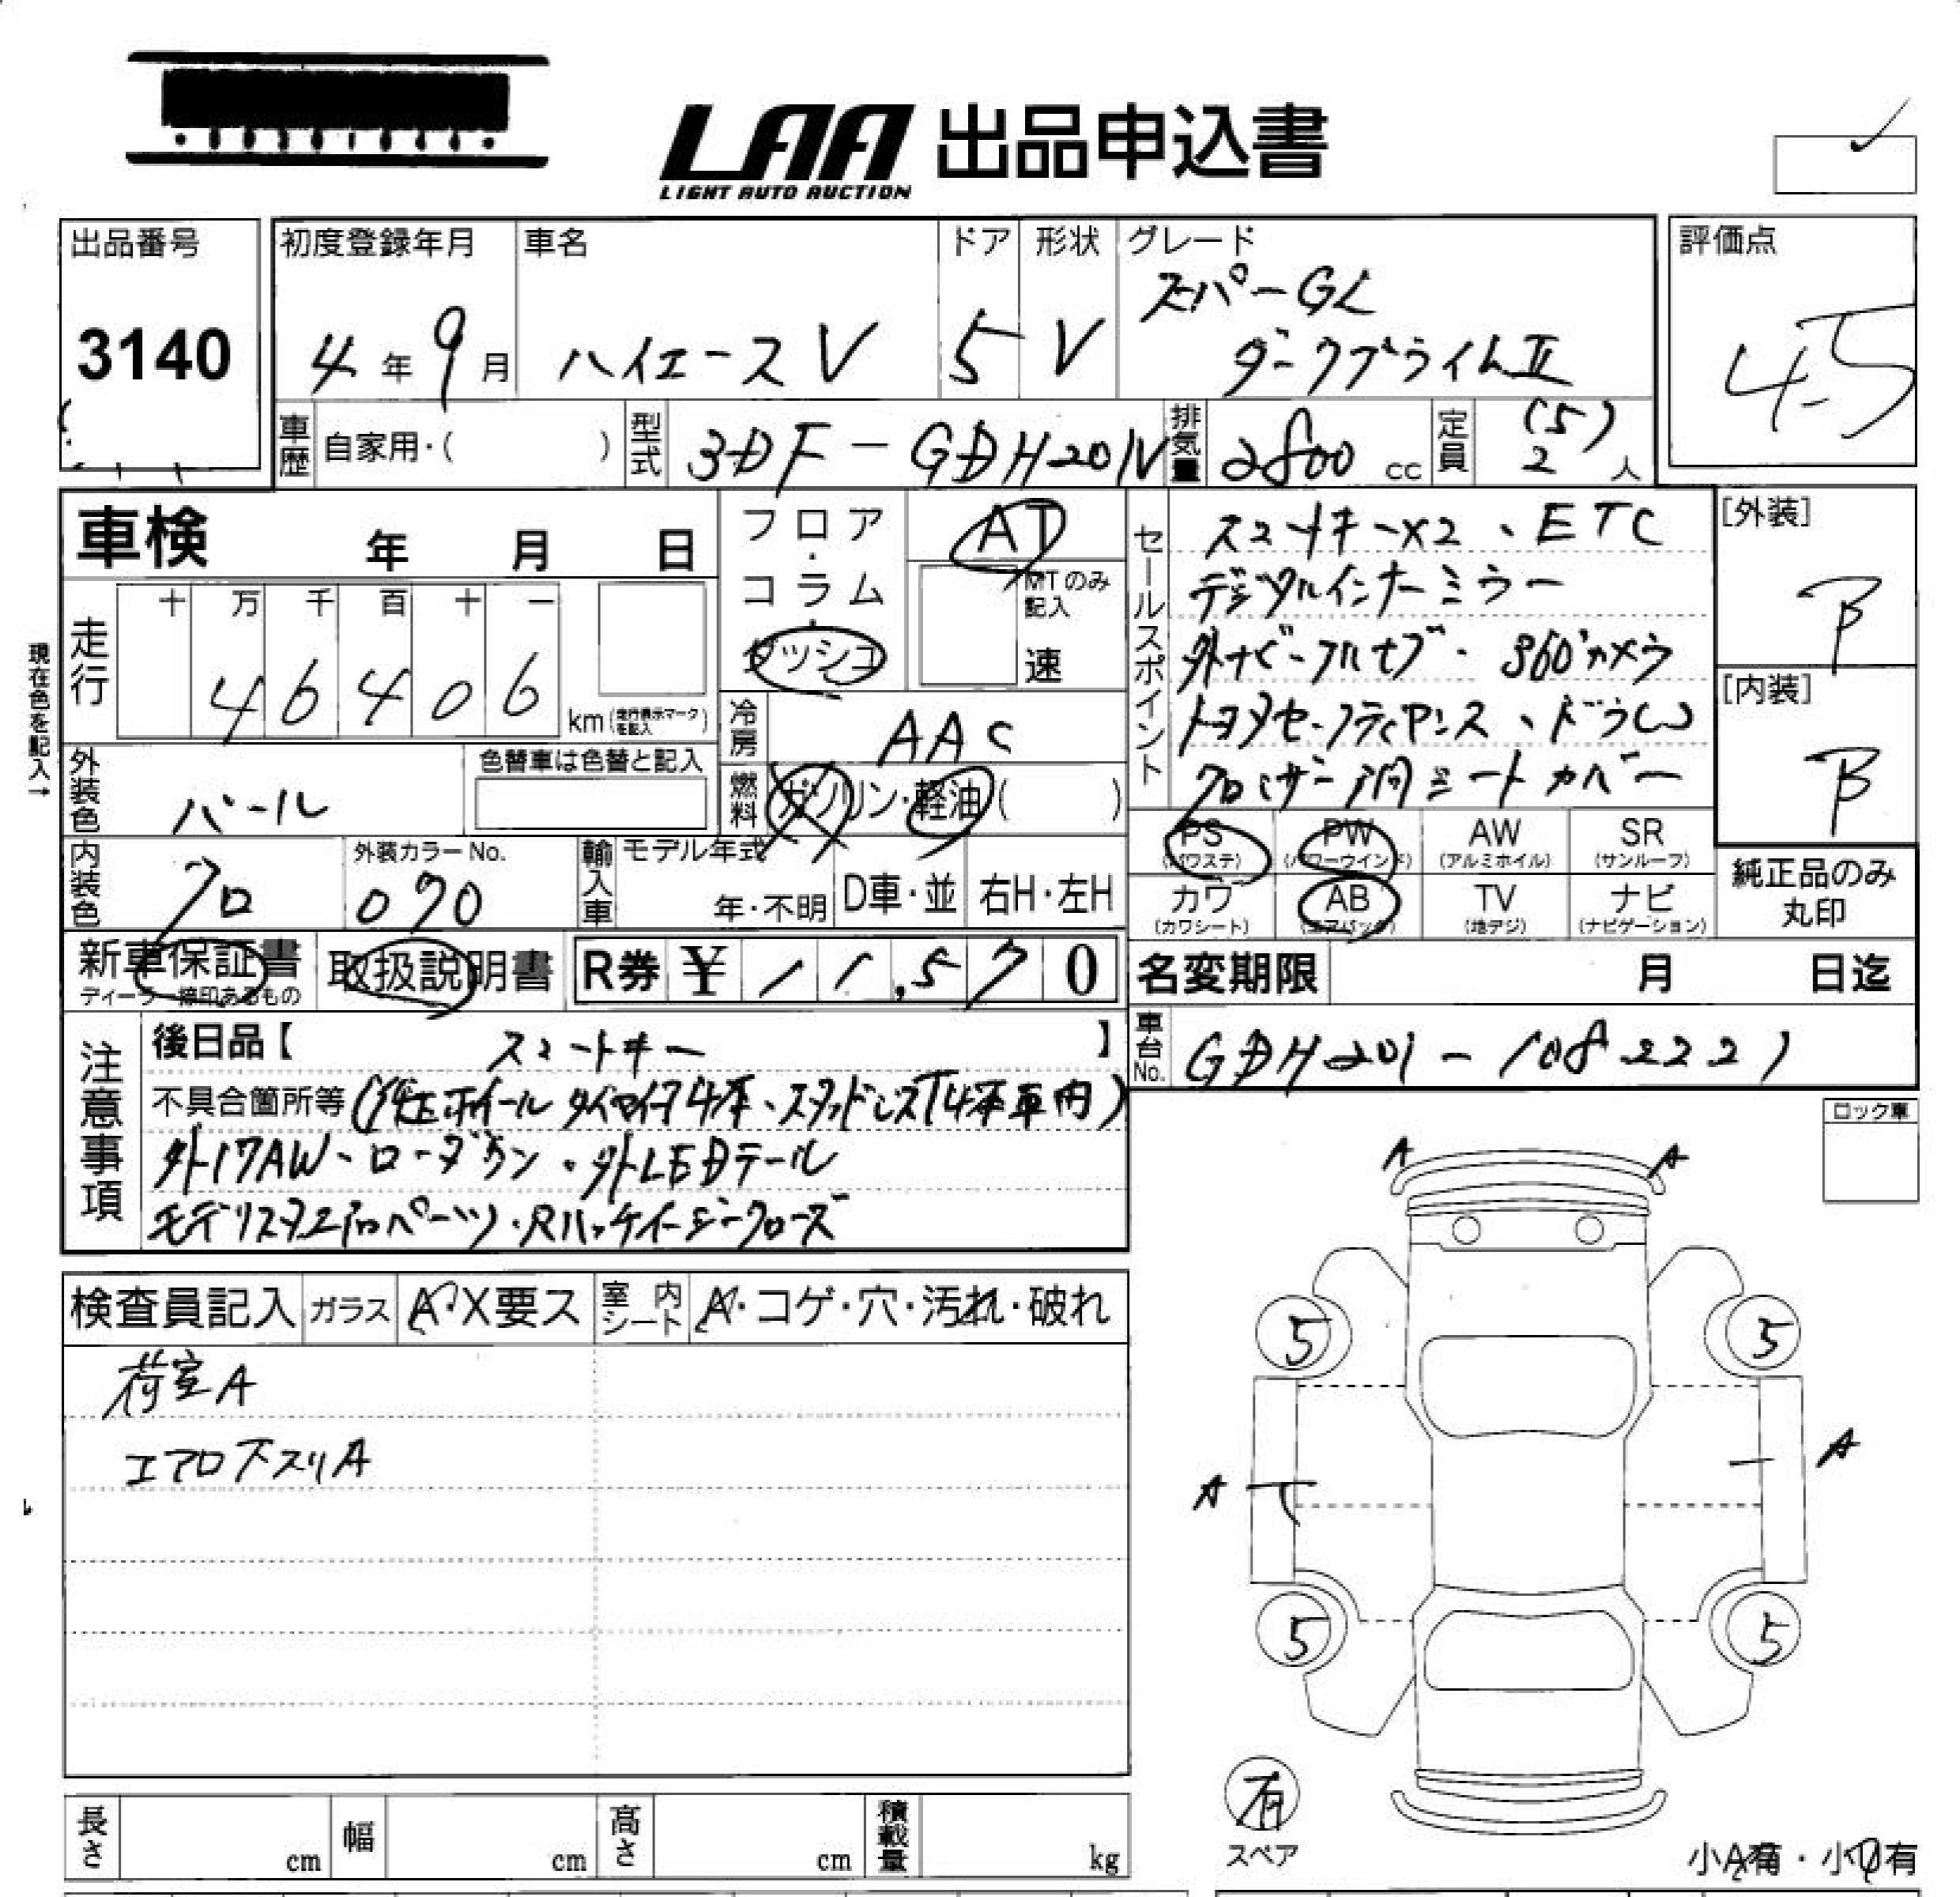 LAA 出品申込書
LIGHT AUTO AUCTION
出品番号
3140
初度登録年月
4年9月
車名
ハイエースV
ドア
5
形状
V
グレード
スーパーGL
ダークプライムⅡ
評価点
4.5
車歴
自家用・( )
型式
3DF-GDH201V
排気量
2800 cc
定員
(5)
2 人
車検 年 月 日
フロア・コラム・ダッシュ
AT
MTのみ記入
速
現在色を記入→
走行
十 万 千 百 十 一
4 6 4 0 6
km (走行表示マークを記入)
冷房
AAC
外装色
パール
色替車は色替と記入
燃料
ガソリン・軽油( )
内装色
クロ
外装カラーNo.
070
輸入車
モデル年式
年・不明
D車・並
右H・左H
新車保証書
ディーラー捺印あるもの
取扱説明書
R券 ¥ 11,570
セールスポイント
スマートキーX2、ETC
デジタルインナーミラー
外ナビ・フルセグ・360°カメラ
トヨタセーフティセンス、ドラレコ
クロレザー調シートカバー
[外装]
B
[内装]
B
PS
(パワステ)
PW
(パワーウインド)
AW
(アルミホイル)
SR
(サンルーフ)
カワ
(カワシート)
AB
(エアバック)
TV
(地デジ)
ナビ
(ナビゲーション)
純正品のみ
丸印
名変期限 月 日迄
車台No.
GDH201-1082221
注意事項
後日品【 スマートキー 】
不具合箇所等(純正ホイール タイヤ付4本、スタッドレスT4本車内)
外17AW・ローダウン・外LEDテール
モデリスタエアロパーツ・Rハッチイージークローズ
ロック車
検査員記入
ガラス
A・X要ス
室内シート
A・コゲ・穴・汚れ・破れ
荷室A
エアロ下スリA
A A
5 5
A A
5 5
有
スペア
小A有・小U有
長さ cm
幅 cm
高さ cm
積載量 kg